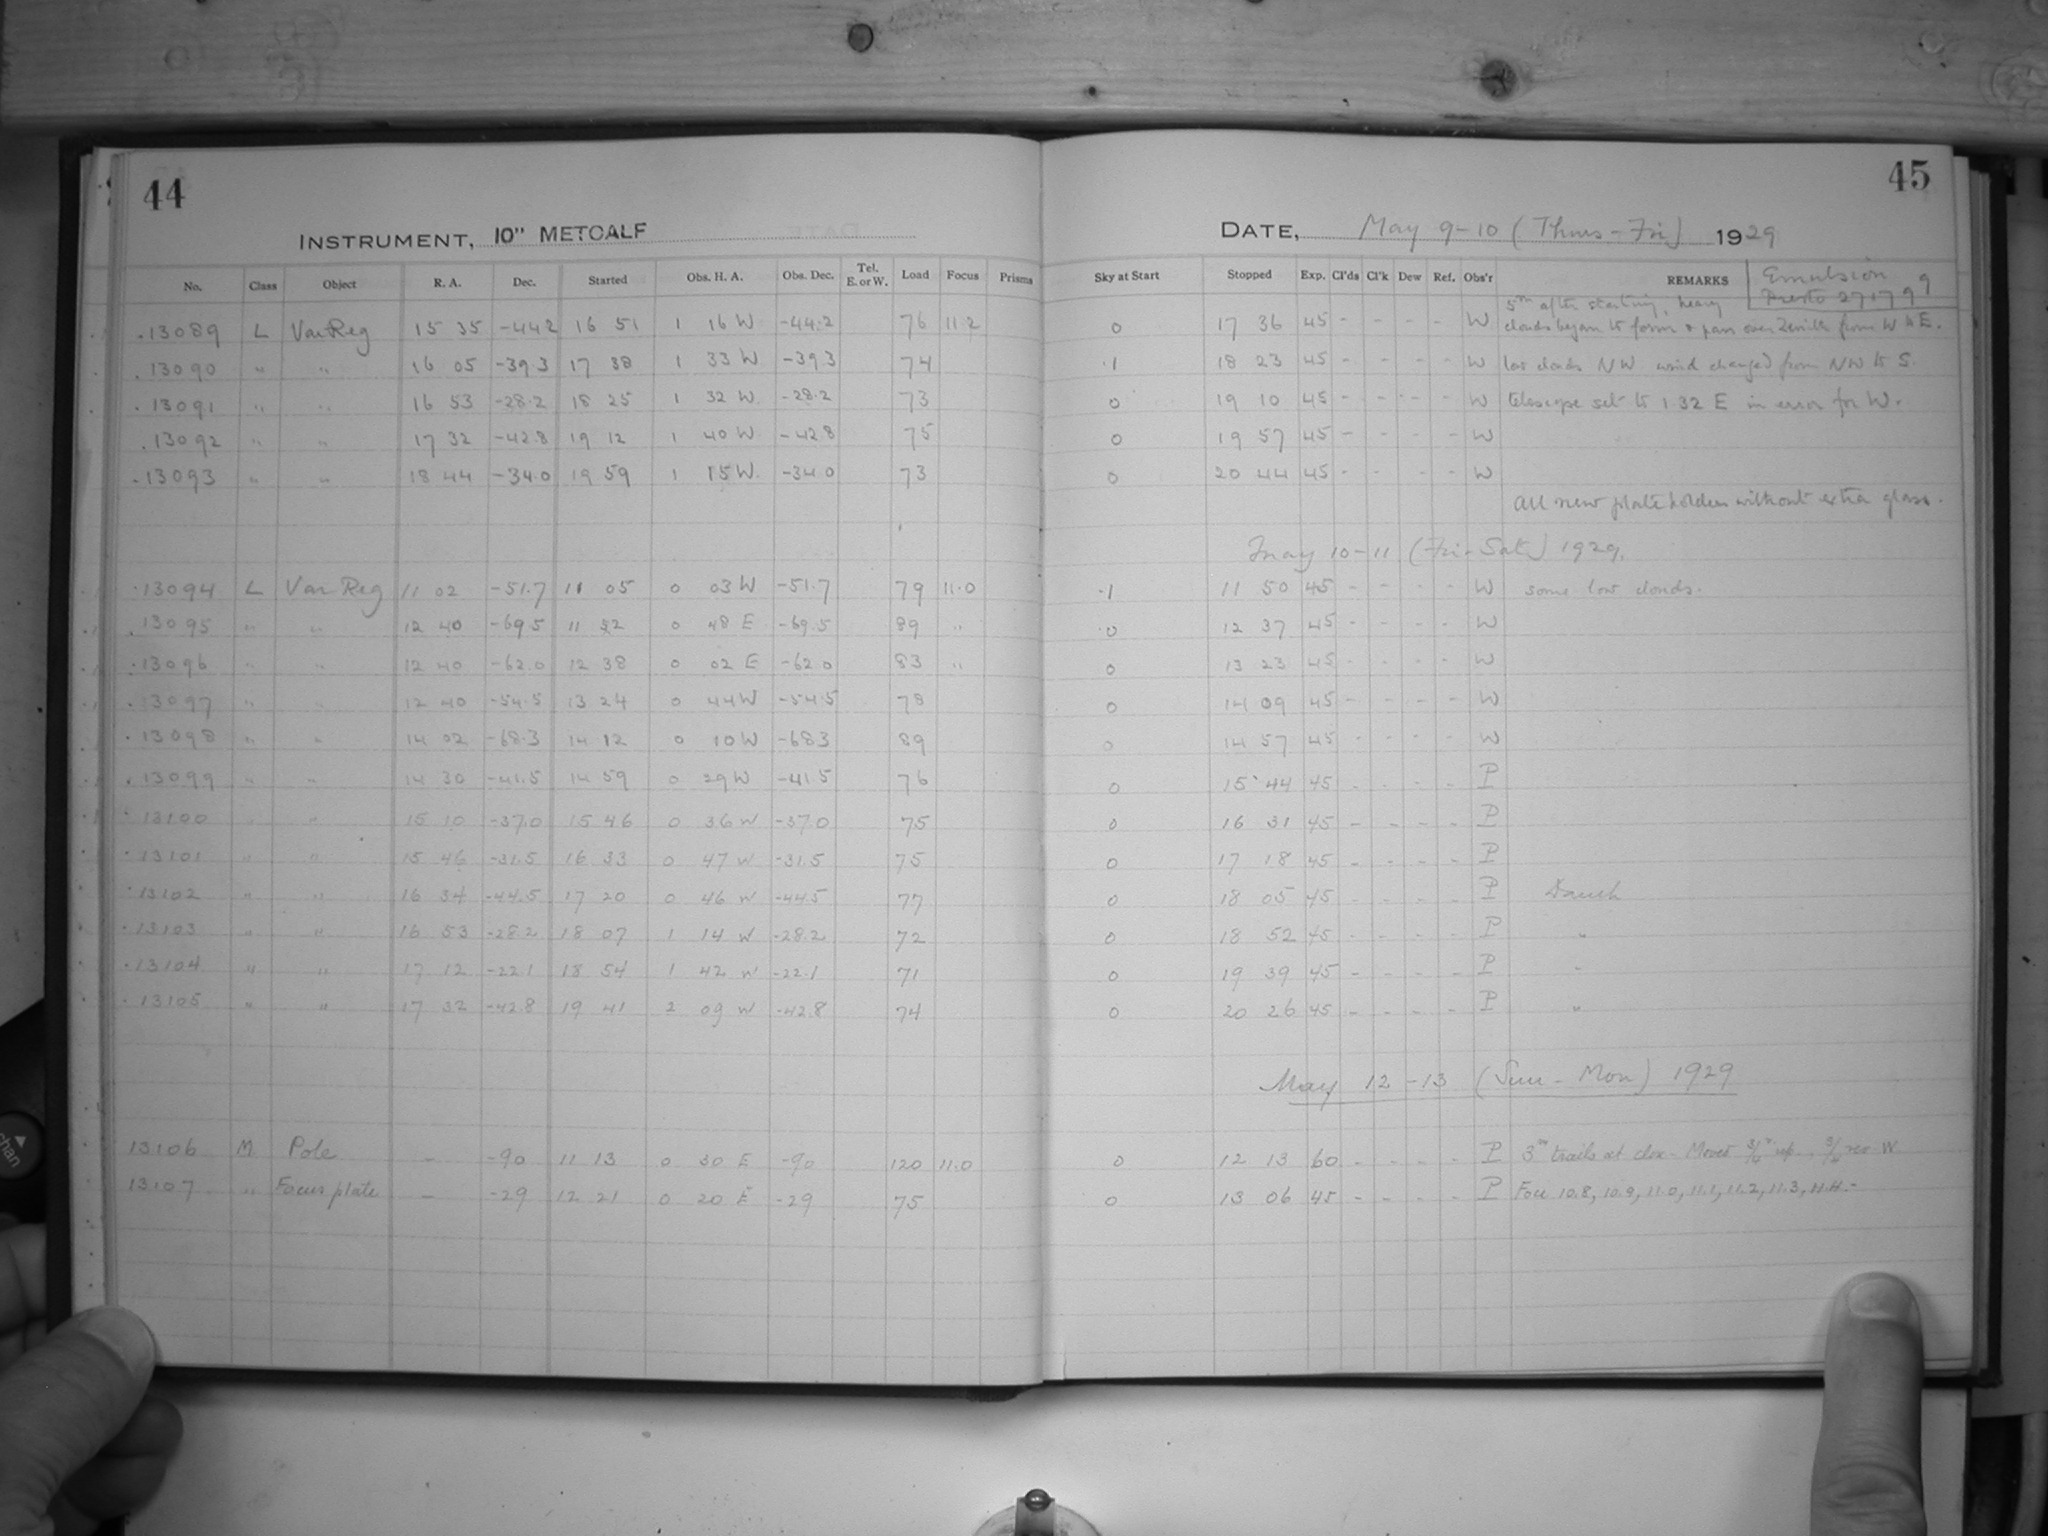 44
INSTRUMENT, 10" METCALF
No. Class Object R. A. Dec. Started Obs. H. A. Obs. Dec. Tel. E. or W. Load Focus Prisms
.13089 L Var Reg 15 35 -44.2 16 51 1 16 W -44.2 76 11.2
.13090 " " 16 05 -39.3 17 38 1 33 W -39.3 74
.13091 " " 16 53 -28.2 18 25 1 32 W. -28.2 73
.13092 " " 17 32 -42.8 19 12 1 40 W -42.8 75
.13093 " " 18 44 -34.0 19 59 1 15 W. -34.0 73
.13094 L Var Reg 11 02 -51.7 11 05 0 03 W -51.7 79 11.0
.13095 " " 12 40 -69.5 11 52 0 48 E -69.5 89 "
.13096 " " 12 40 -62.0 12 38 0 02 E -62.0 83 "
.13097 " " 12 40 -54.5 13 24 0 44 W -54.5 78
.13098 " " 14 02 -68.3 14 12 0 10 W -68.3 89
.13099 " " 14 30 -41.5 14 59 0 29 W -41.5 76
.13100 " " 15 10 -37.0 15 46 0 36 W -37.0 75
.13101 " " 15 46 -31.5 16 33 0 47 W -31.5 75
.13102 " " 16 34 -44.5 17 20 0 46 W -44.5 77
.13103 " " 16 53 -28.2 18 07 1 14 W -28.2 72
.13104 " " 17 12 -22.1 18 54 1 42 W -22.1 71
.13105 " " 17 32 -42.8 19 41 2 09 W -42.8 74
13106 M Pole - -90 11 13 0 30 E -90 120 11.0
13107 " Focus plate - -29 12 21 0 20 E -29 75
45
DATE, May 9-10 (Thurs-Fri) 1929
Sky at Start Stopped Exp. Cl'ds Cl'k Dew Ref. Obs'r REMARKS
Emulsion
Presto 27179
5m after starting, heavy
0 17 36 45 - - - - W clouds began to form & pass over Zenith from W to E.
.1 18 23 45 - - - - W low clouds NW. wind changed from NW to S.
0 19 10 45 - - - - W telescope set to 1 32 E in error for W.
0 19 57 45 - - - - W
0 20 44 45 - - - - W
All new plate holders without extra glass.
May 10-11 (Fri-Sat) 1929.
.1 11 50 45 - - - - W some low clouds.
0 12 37 45 - - - - W
0 13 23 45 - - - - W
0 14 09 45 - - - - W
0 14 57 45 - - - - W
0 15 44 45 - - - - P
0 16 31 45 - - - - P
0 17 18 45 - - - - P
0 18 05 45 - - - - P
0 18 52 45 - - - - P "
0 19 39 45 - - - - P "
0 20 26 45 - - - - P "
May 12-13 (Sun-Mon) 1929
0 12 13 60 - - - - P 3m trails at close. Moved 3/4 rev W
0 13 06 45 - - - - P Foc 10.8, 10.9, 11.0, 11.1, 11.2, 11.3, 11.4.-